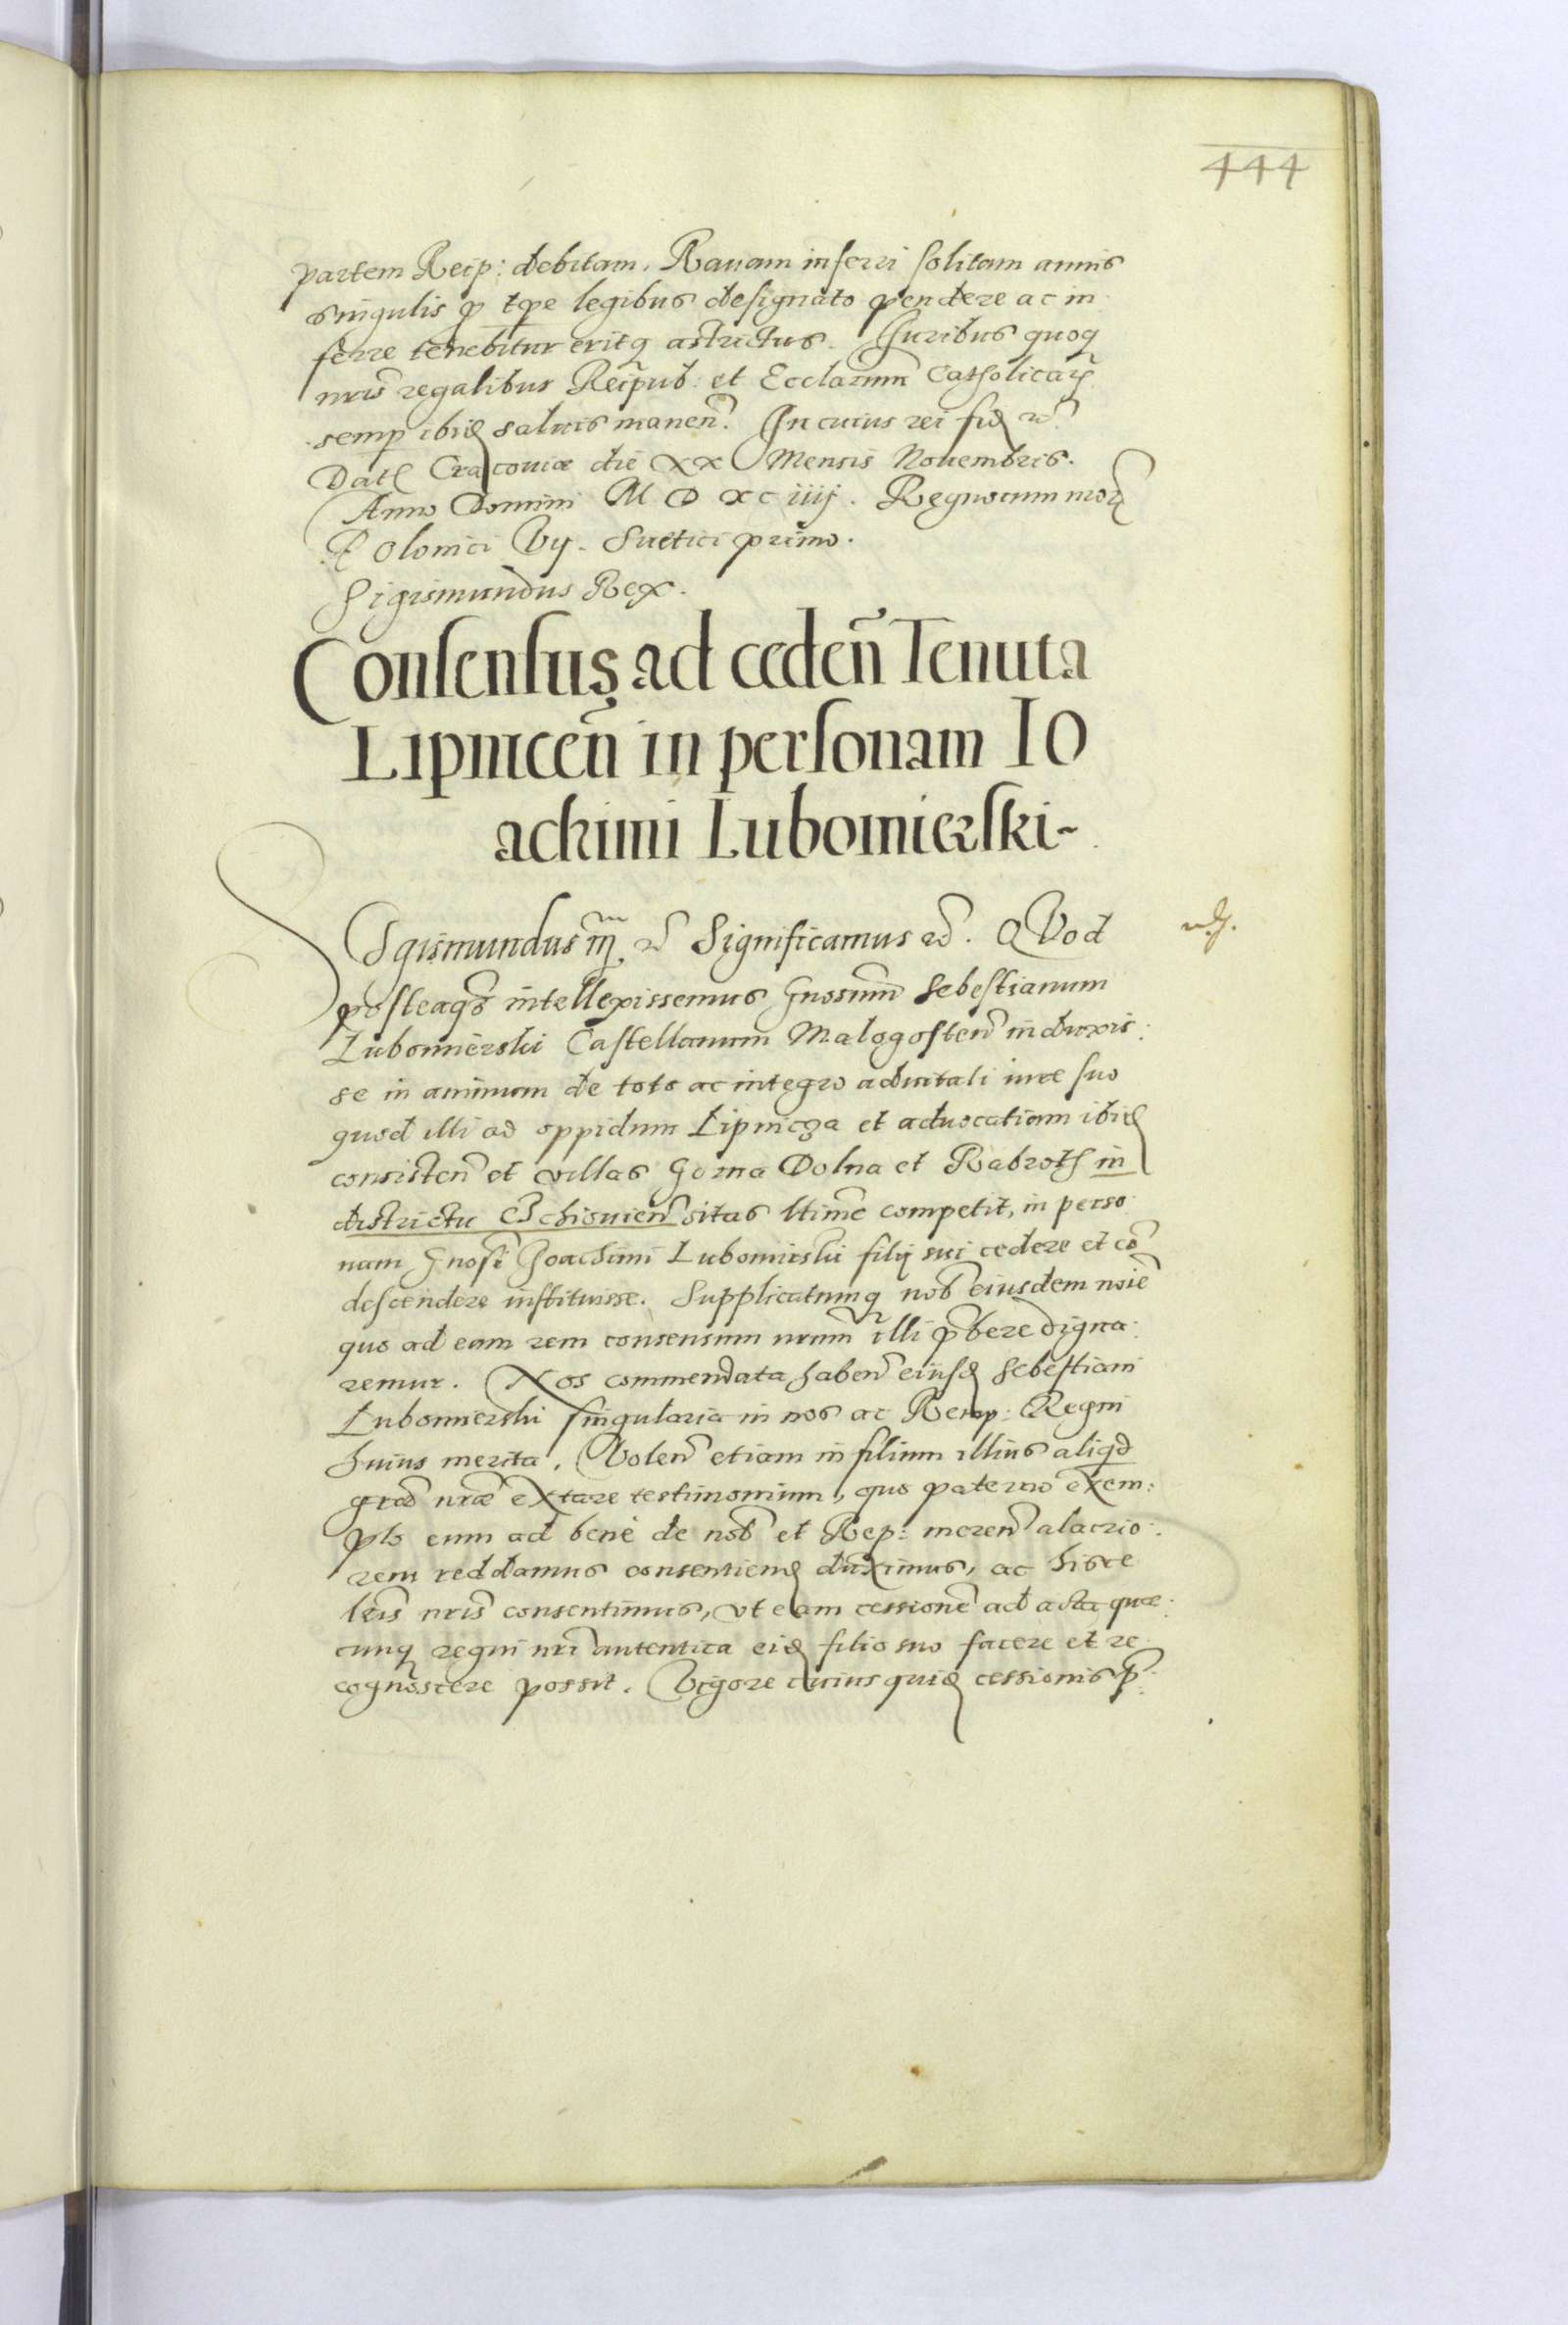 444
partem Reip: debitam. Rauam inferri solitam annis
singulis p tpe legibus designato pendere ac in
ferre tenebitur eritq astrictus. Juribus quoq
nris regalibus Reipub: et Ecclarum Catholicar
semp ibid saluis manen. In cuius rei fid etc.
Dat Cracouiæ die XX Mensis Nouembris.
Anno Domini M D XC iiij. Regnorum nror
Polonici Vij. Suetici primo.
Sigismundus Rex.
Consensus ad ceden Tenuta
Lipnicen in personam Io
achimi Lubomierski-
Sigismundus III etc Significamus etc. QVod
posteaq intellexissemus Gnosum Sebestianum
Lubomierski Castellanum Malogosten induxis:
se in animum de toto ac integro aduitali iure suo
quod illi ad oppidum Lipnicza et aduocatiam ibid
consisten et villas Gorna Dolna et Rabroth in
districtu Cżchiouien sitas ltime competit, in perso
nam Gnosi Joachimi Lubomirski filij sui cedere et co
descendere instituisse. Supplicatumq nob eiusdem noie
quo ad eam rem consensum nrum illi pbere digna:
remur. Nos commendata haben eiusd Sebestiani
Lubomierski singularia in nos ac Remp: Regni
huius merita. Volen etiam in filium illius aliqd
grae nrae extare testimonium, quo paterno exem:
plo eum ad bene de nob et Rep: meren alacrio:
rem reddamus consentiend duximus, ac hisce
lris nris consentimus, vt eam cessione ad acta quæ:
cunq regni nri autentica eid filio suo facere et re
cognoscere possit. Vigore cuius quid cessionis p